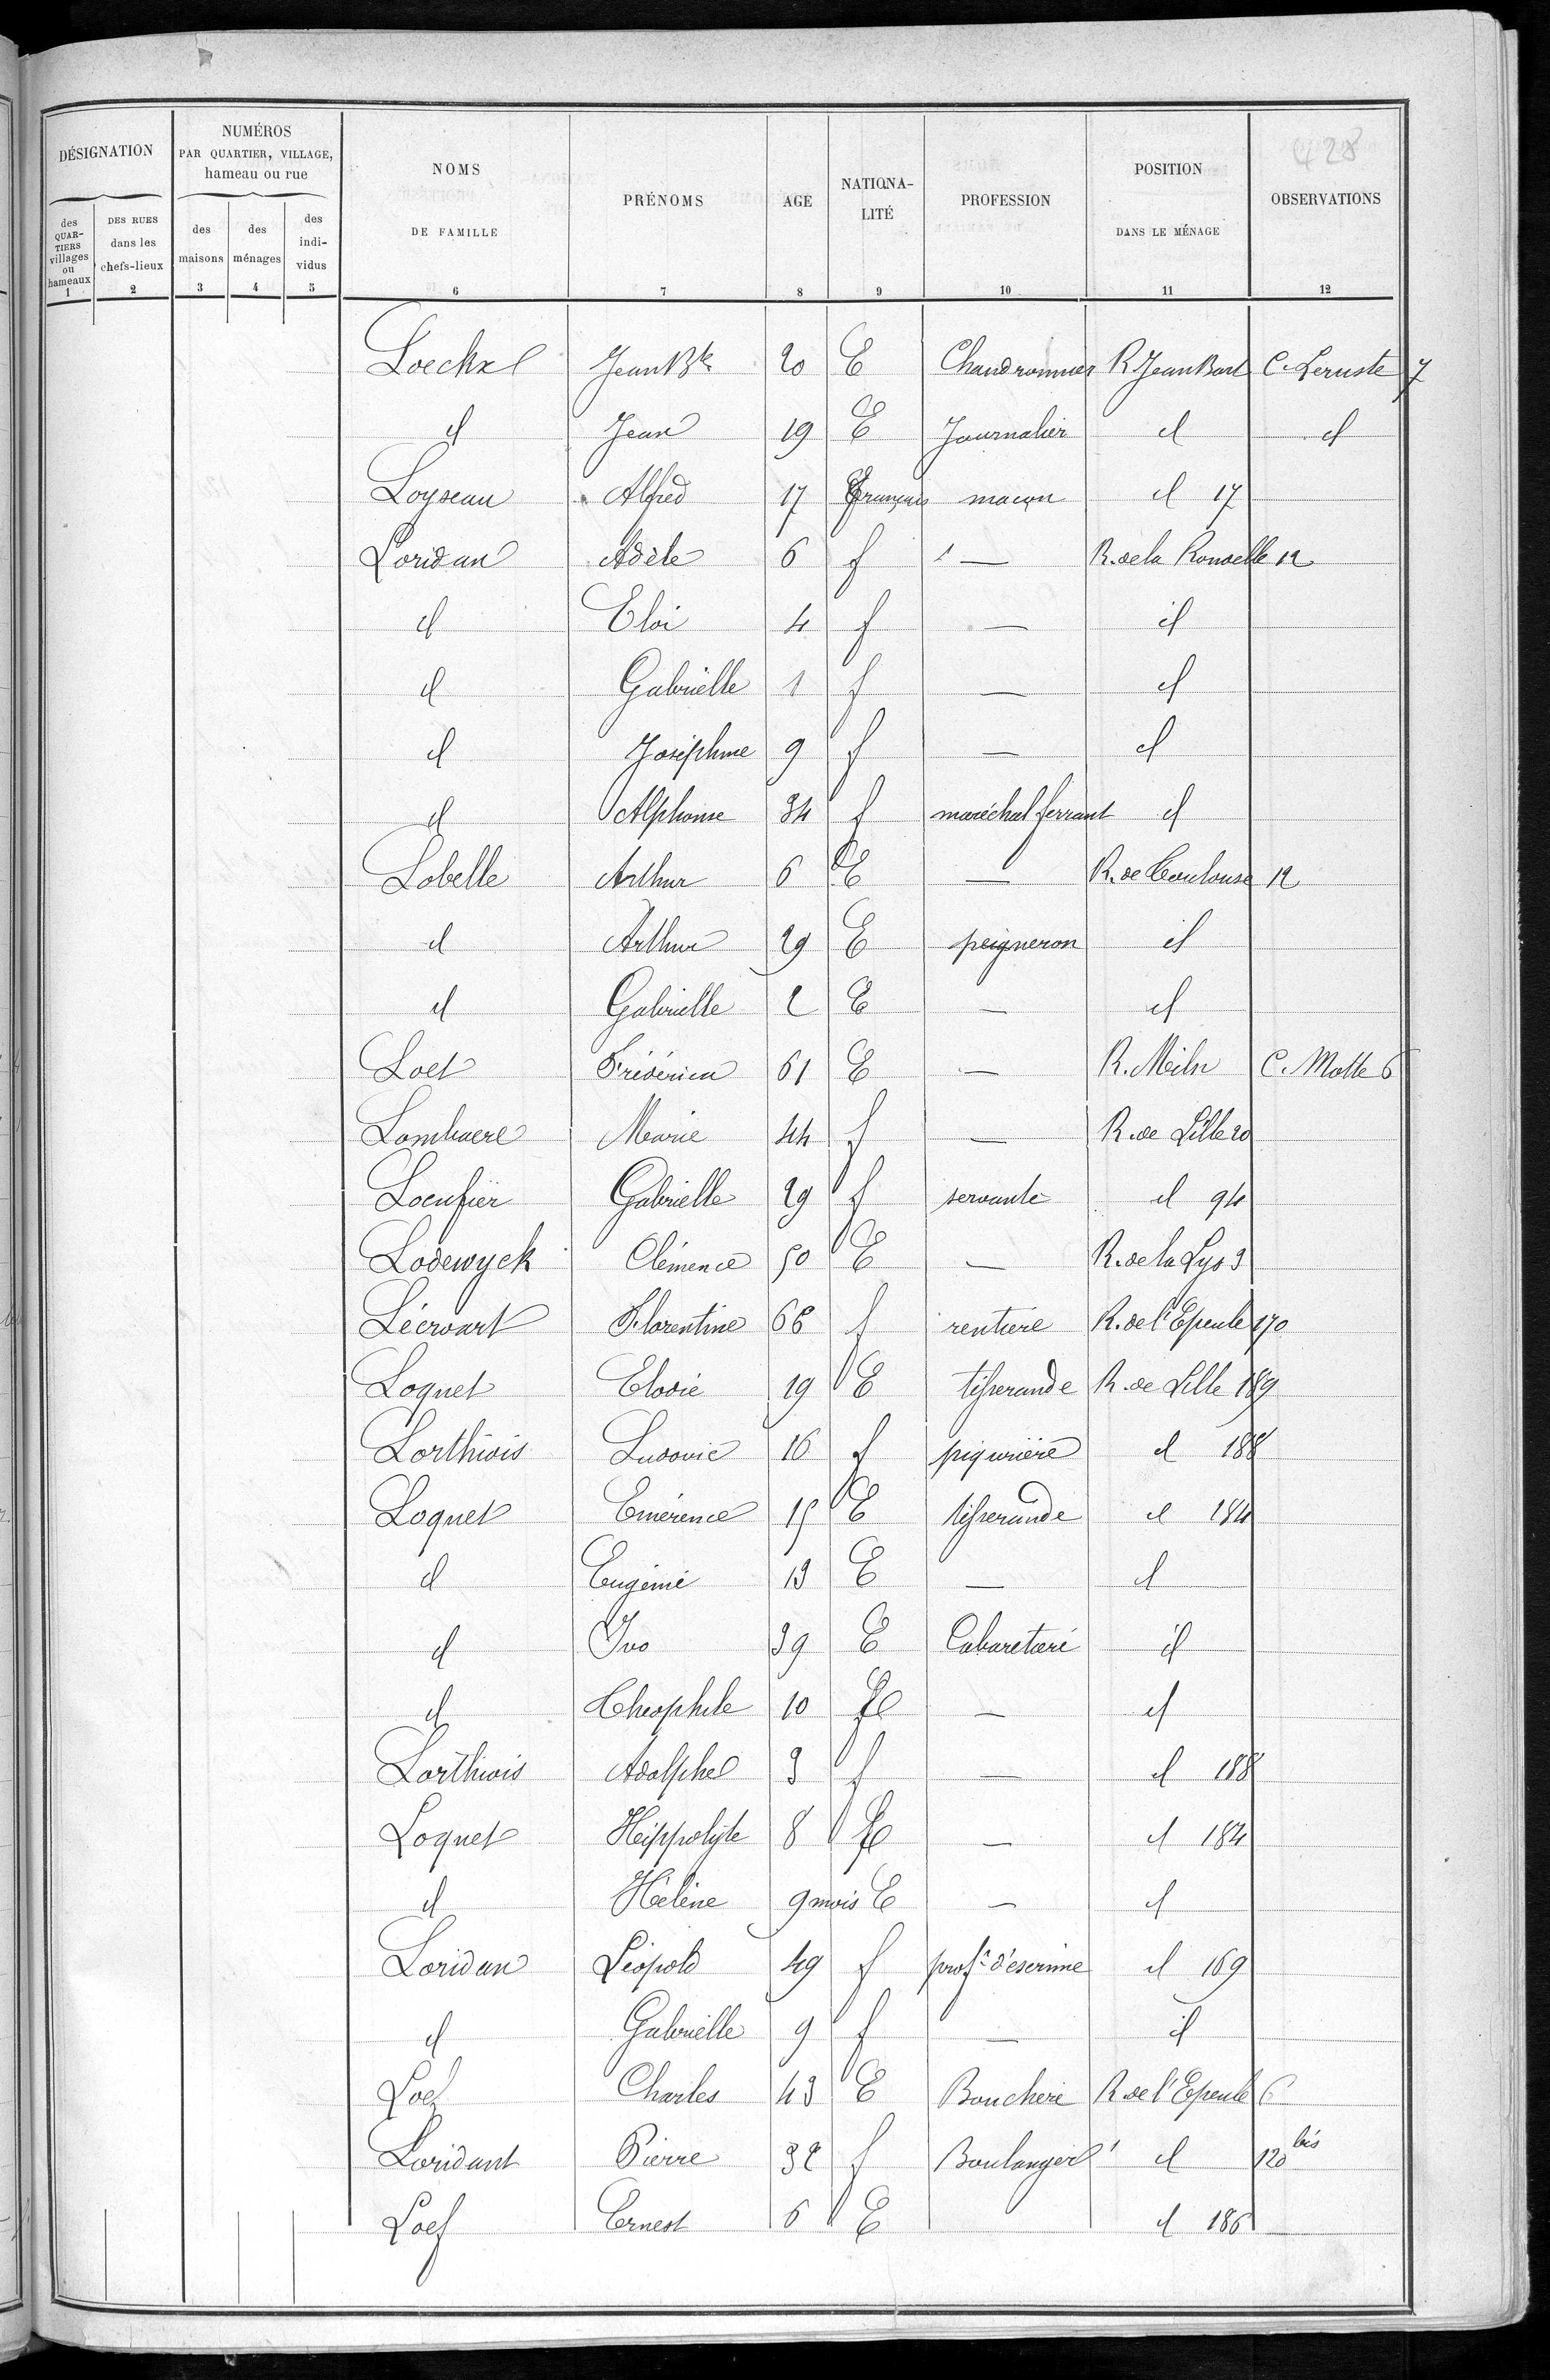 428
DÉSIGNATION
NUMÉROS
PAR QUARTIER, VILLAGE,
hameau ou rue
NOMS
DE FAMILLE
PRÉNOMS
AGE
NATIONA-
LITÉ
PROFESSION
POSITION
DANS LE MÉNAGE
OBSERVATIONS
des
QUAR-
TIERS
villages
ou
hameaux
DES RUES
dans les
chefs-lieux
des
maisons
des
ménages
des
indi-
vidus
1 2 3 4 5 6 7 8 9 10 11 12
Jean Bte 20 E Chaudronnier R Jean Bart C. Leruste 7
d Jean 19 E Journalier d d
Loyseau Alfred 17 français maçon d 17
Loridan Adèle 6 f — R. de la Rondelle 12
d Eloi 4 f — d
d Gabrielle 1 f — d
d Joséphine 9 f — d
d Alphonse 34 f maréchal ferrant d
Lobelle Arthur 6 E — R. de Toulouse 12
d Arthur 29 E peigneron d
d Gabrielle 2 E — d
Loet 61 E — R. Miln C. Motte 6
Lombaere Marie 44 f — R. de Lille 20
Locufier Gabrielle 29 f servante d 94
Lodewyck Clémence 50 E — R. de la Lys 3
Lécroart Florentine 66 f rentière R. de l'Epeule 170
Loquet Elodie 19 E tisserande R. de Lille 189
Lorthiois Ludovic 16 f piqurière d 188
Loquet Emérence 15 E tisserande d 184
d Eugénie 13 E — d
d Ivo 39 E Cabaretier d
d Théophile 10 E — d
Lorthiois Adolphe 3 f — d 188
Loquet Hippolyte 8 E — d 184
d Hélène 9 mois E — d
Loridan Léopold 49 f profr d'escrime d 169
d Gabrielle 9 f — d
Loef Charles 43 E Boucher R de l'Epeule 6
Loridant Pierre 32 f Boulanger d 120 bis
Loef Ernest 6 E d 186